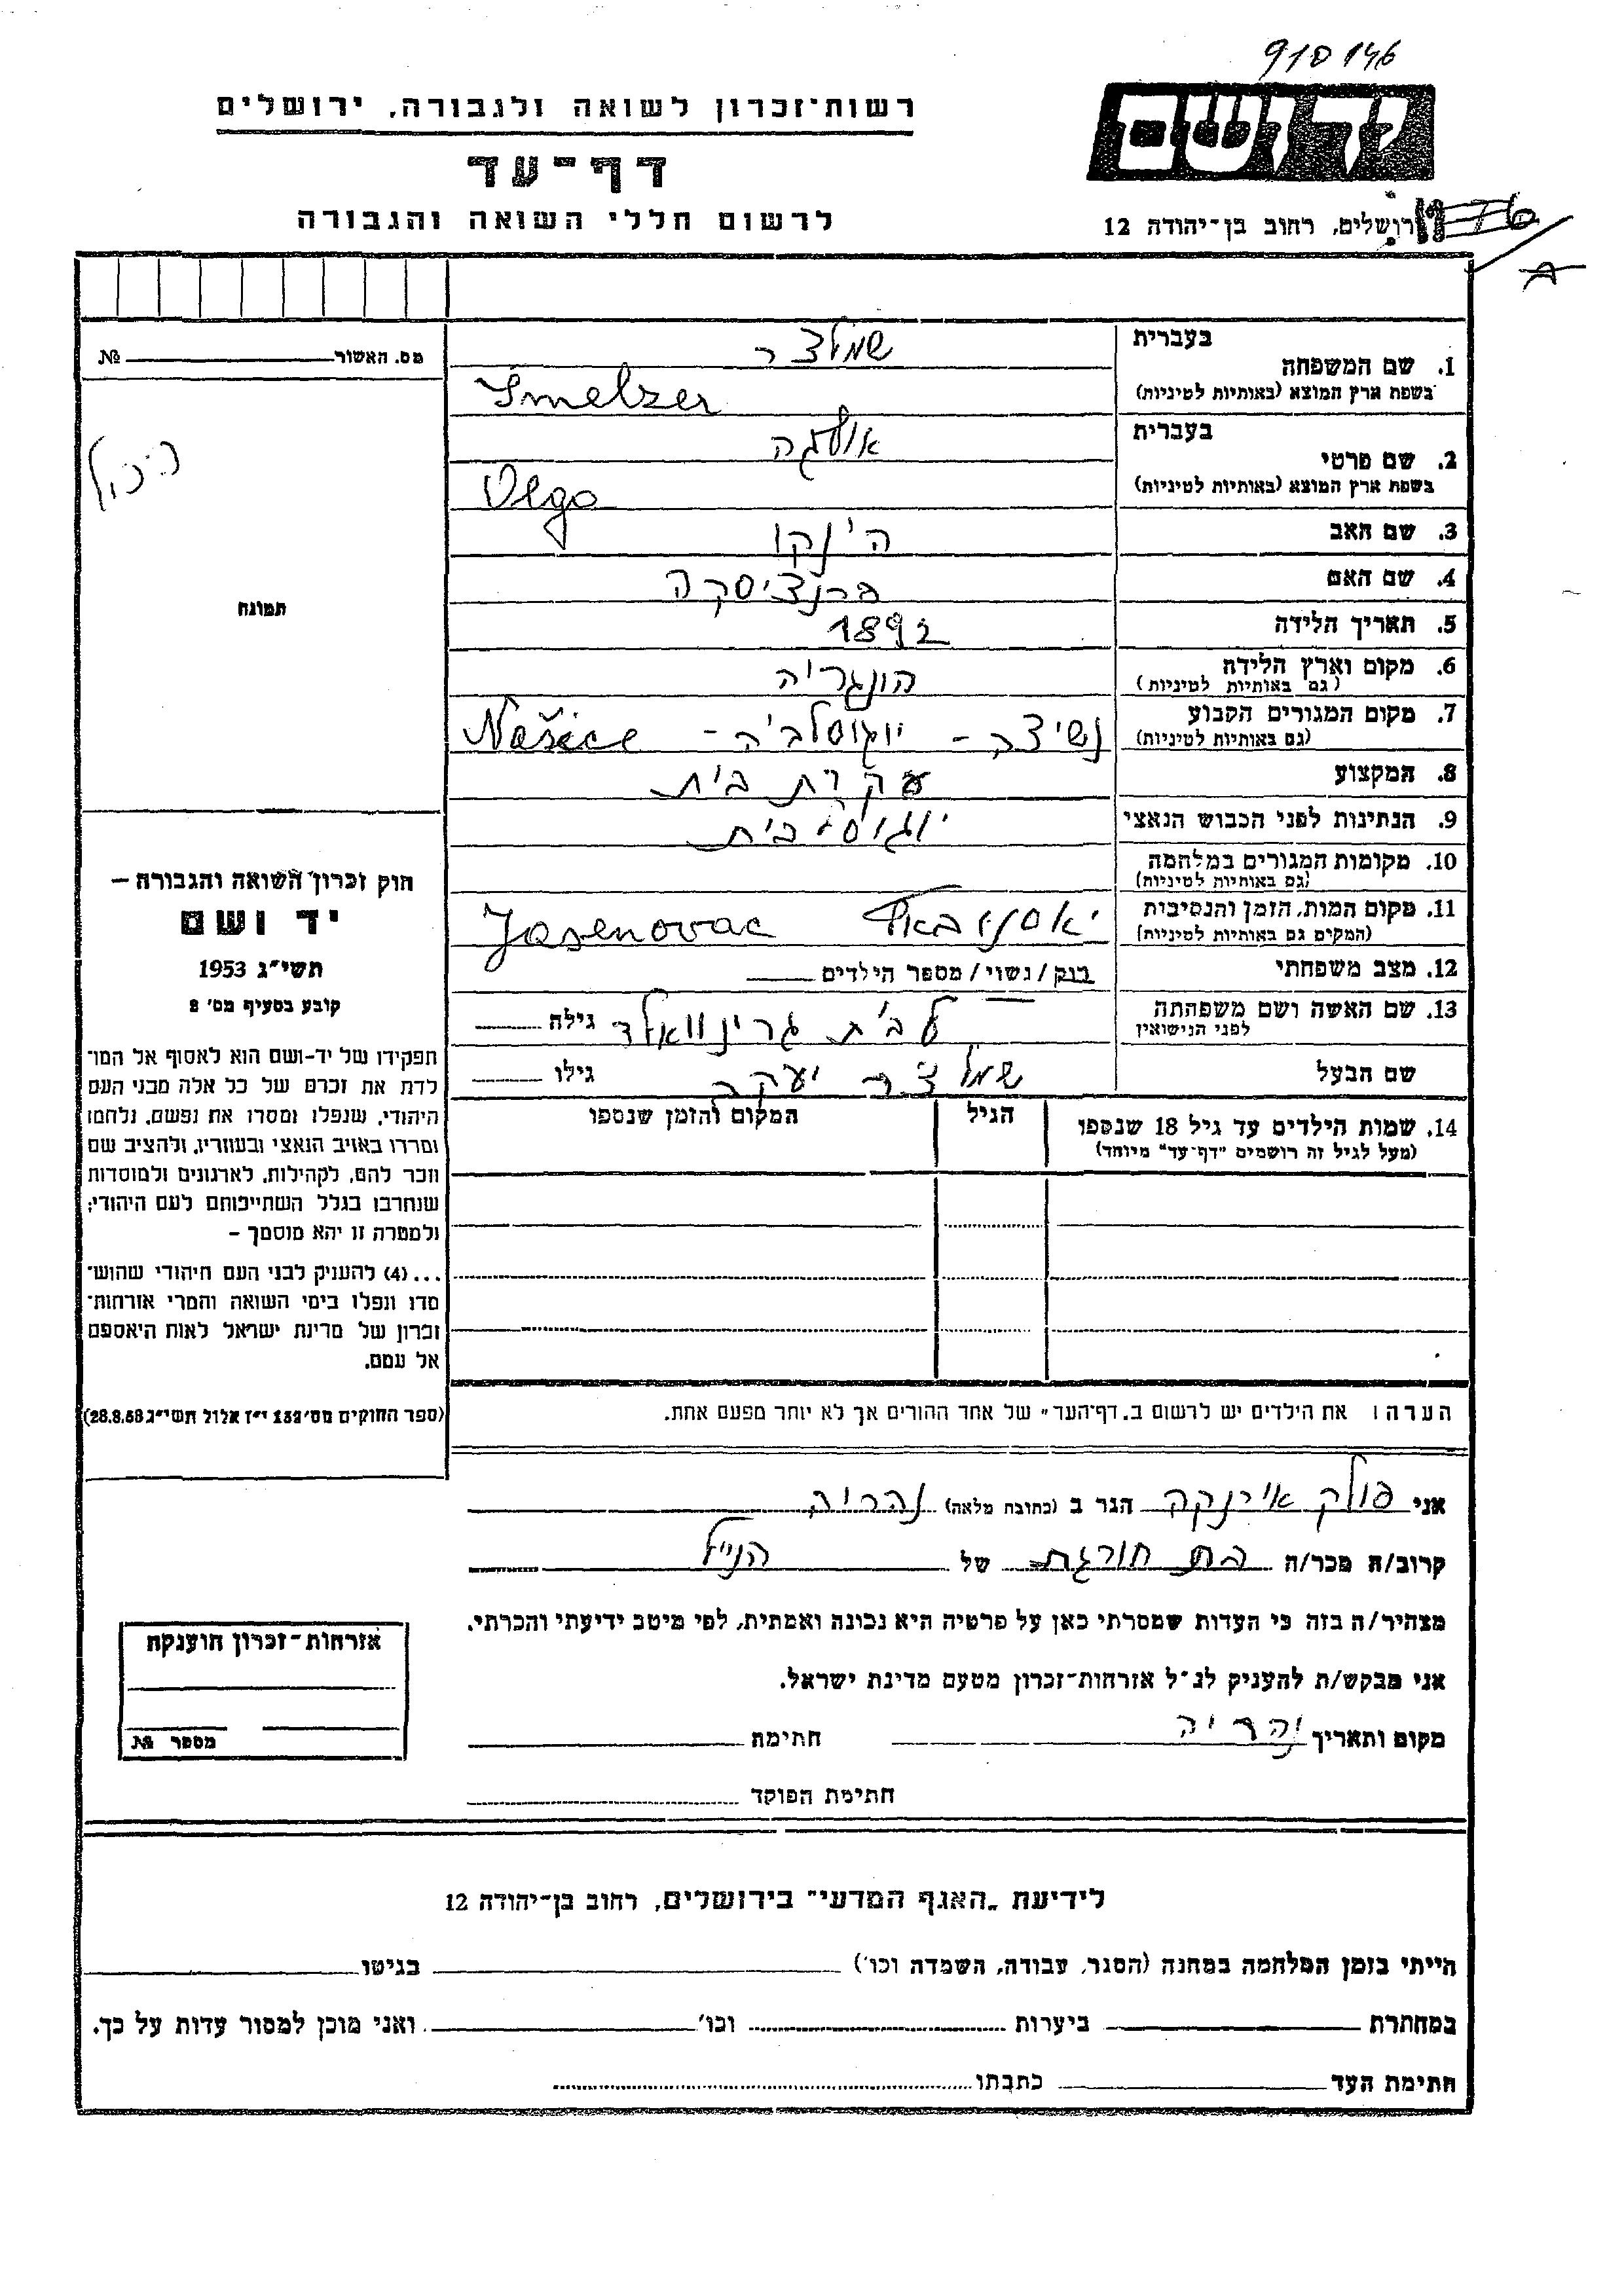 910146
ידושם
רשות־זכרון לשואה ולגבורה, ירושלים
דף־עד
לרשום חללי השואה והגבורה
ירושלים, רחוב בן־יהודה 12
מס. האשור № 
1. שם המשפחה
בעברית שמלצר
בשפת ארץ המוצא (באותיות לטיניות) Smelzer
2. שם פרטי
בעברית אולגה
בשפת ארץ המוצא (באותיות לטיניות) Olga
3. שם האב הינקו
4. שם האם פרנציסקה
5. תאריך הלידה 1892
6. מקום וארץ הלידה הונגריה
(גם באותיות לטיניות)
7. מקום המגורים הקבוע נשיצה - יוגוסלביה - Našice
(גם באותיות לטיניות)
8. המקצוע עקרת בית
9. הנתינות לפני הכבוש הנאצי יוגוסלבית
10. מקומות המגורים במלחמה
(גם באותיות לטיניות)
11. מקום המות, הזמן והנסיבות יאסנובאץ Jasenovac
(המקום גם באותיות לטיניות)
12. מצב משפחתי רווק/נשוי/מספר הילדים
13. שם האשה ושם משפחתה לבית גרינוואלד גילה
לפני הנישואין
שם הבעל שמלצר יעקב גילו
14. שמות הילדים עד גיל 18 שנספו הגיל המקום והזמן שנספו
(מעל לגיל זה רושמים "דף־עד" מיוחד)
הערה: את הילדים יש לרשום ב"דף־העד" של אחד ההורים אך לא יותר מפעם אחת.
תמונה
חוק זכרון השואה והגבורה –
יד ושם
תשי"ג 1953
קובע בסעיף מס׳ 2
תפקידו של יד-ושם הוא לאסוף אל המו־
לדת את זכרם של כל אלה מבני העם
היהודי, שנפלו ומסרו את נפשם, נלחמו
ומרדו באויב הנאצי ובעוזריו, ולהציב שם
וזכר להם, לקהילות, לארגונים ולמוסדות
שנחרבו בגלל השתייכותם לעם היהודי;
ולמטרה זו יהא מוסמך –
...(4) להעניק לבני העם היהודי שהוש־
מדו ונפלו בימי השואה והמרי אזרחות־
זכרון של מדינת ישראל לאות היאספם
אל עמם.
(ספר החוקים מס׳ 132 י"ז אלול תשי"ג 28.8.53)
אני פולק אירנקה הגר ב (כתובת מלאה) נהריה
קרוב/ה מכר/ה בת חורגת של הנ״ל
מצהיר/ה בזה כי העדות שמסרתי כאן על פרטיה היא נכונה ואמתית, לפי מיטב ידיעתי והכרתי.
אני מבקש/ת להעניק לנ"ל אזרחות־זכרון מטעם מדינת ישראל.
מקום ותאריך נהריה חתימת
חתימת הפוקד
אזרחות־זכרון הוענקה
מספר №
לידיעת "האגף המדעי" בירושלים, רחוב בן־יהודה 12
הייתי בזמן המלחמה במחנה (הסגר, עבודה, השמדה וכו׳) בגיטו
במחתרת ביערות וכו׳ ואני מוכן למסור עדות על כך.
חתימת העד כתבתו